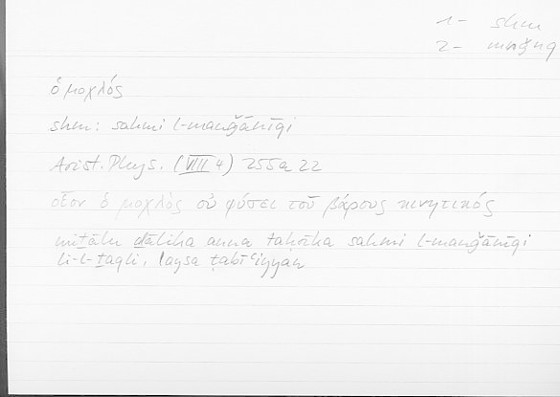 1- shm
2- mnǧnq
ὁ μοχλός
shm: sahmi l-manǧānīqi
Arist. Phys. (VIII 4) 255a22
οἷον ὁ μοχλὸς οὐ φύσει τοῦ βάρους κινητικός
miṯālu ḏālika anna taḥrīka sahmi l-manǧānīqi
li-l-ṯaqli, laysa ṭabīʿiyyan